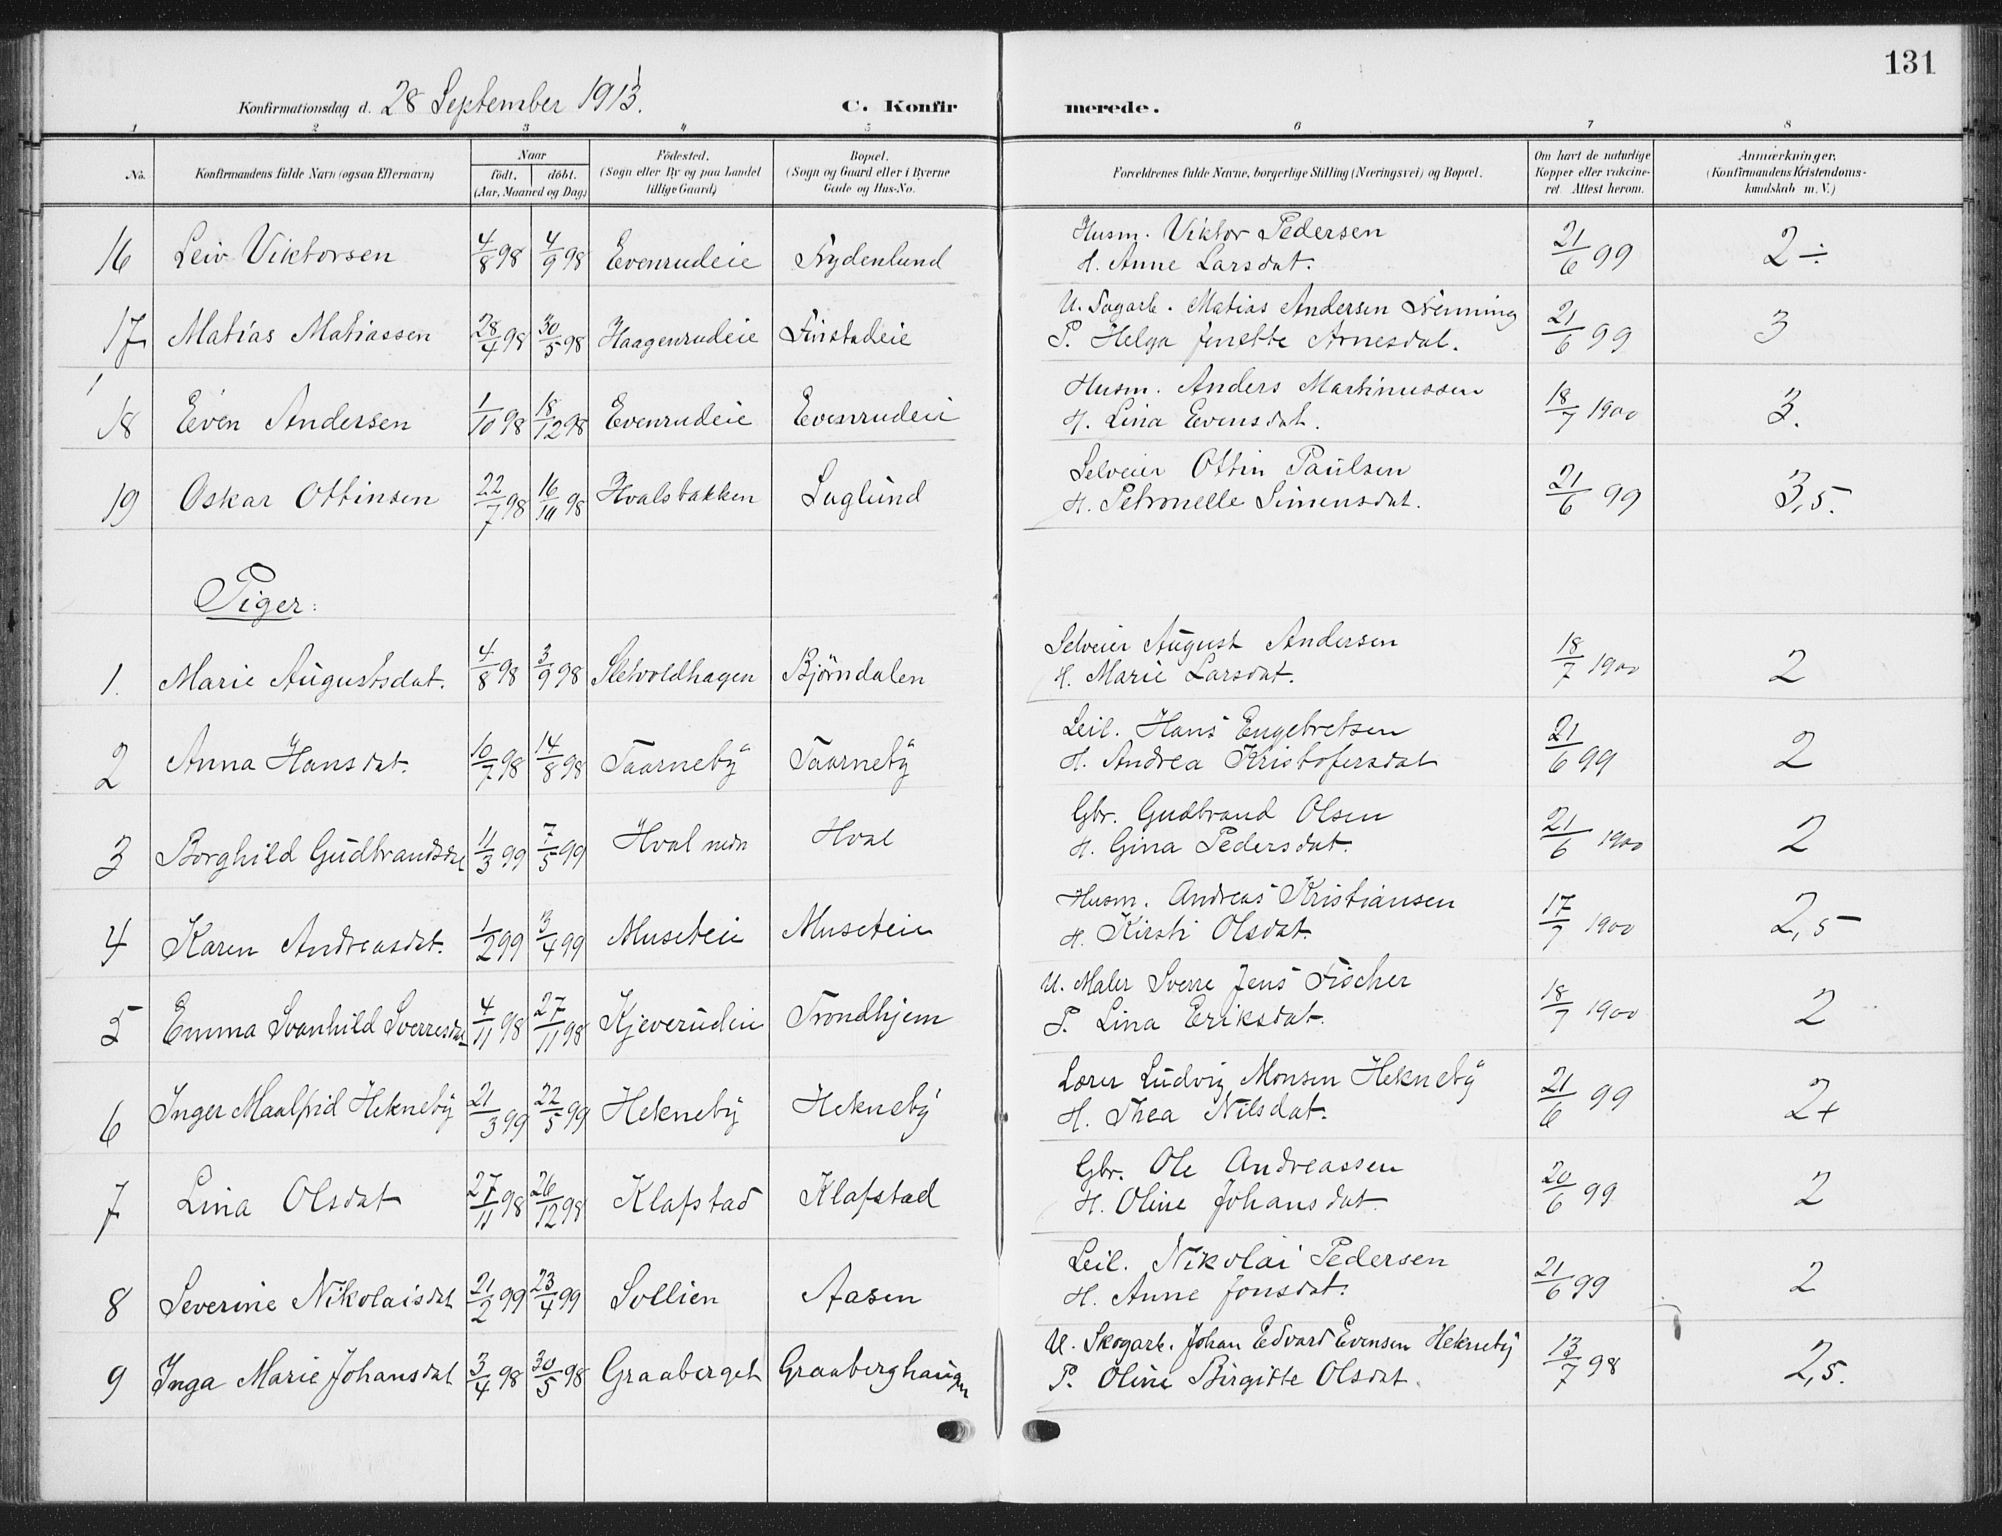 131
Konfirmationsdag d. 28 September 1913. C. Konfirmerede.
1 2 3 4 5 6 7 8
No. Konfirmandens fulde Navn (ogsaa Efternavn) Naar födt. döbt. (Aar, Maaned og Dag) Födested. (Sogn eller By og paa Landet tillige Gaard) Bopæl. (Sogn og Gaard eller i Byerne Gade og Hus-No. Forældrenes fulde Navne, borgerlige Stilling (Næringsvei) og Bopæl. Om havt de naturlige Kopper eller vakcineret. Attest herom. Anmærkninger. (Konfirmandens Kristendomskundskab m. V.)
16 Leiv Viktorsen 4/8 98 4/9 98 Evenrudeie Frydenlund Husm. Viktor Pedersen H. Anne Larsdat. 21/6 99 2 ÷
17 Matias Matiassen 28/4 98 30/5 98 Haagenrudeie Finstadeie U. Sagarb. Matias Andersen P. Helga Jenette Arnesdat. 21/6 99 3
18 Even Andersen 1/10 98 18/12 98 Evenrudeie Evenrudeie Husm. Anders Martinussen H. Lina Evensdat. 18/7 1900 3.
19 Oskar Ottinsen 22/7 98 16/10 98 Hvalsbakken Laglund Selveier Ottin Paulsen H. Petronelle Simensdat. 21/6 99 3,5.
Piger:
1. Marie Augustsdat. 4/8 98 3/9 98 Sletvoldhagen Bjørndalen Selveier August Andersen H. Marie Larsdat. 18/7 1900 2
2 Anna Hansdat. 10/7 98 14/8 98 Taarneby Taarneby Leil. Hans Engebretsen H. Andrea Kristofersdat 21/6 99 2
3 Borghild Gudbrandsdat 11/3 99 7/5 99 Hval nedn Hval Gbr. Gudbrand Olsen H. Gina Pedersdat. 21/6 1900 2
4 Karen Andreasdat. 1/2 99 3/4 99 Museteie Museteie Husm. Andreas Kristiansen H. Kirsti Olsdat. 17/7 1900 2,5
5 Emma Svanhild Sverresdat 4/11 98 27/11 98 Kjeverudeie Trondhjem U. Maler Sverre Jens Fischer P. Lina Eriksdat. 18/7 1900 2
6 Inger Maalfrid Hekneby 21/3 99 22/5 99 Hekneby Hekneby Lærer Ludvig Monsen Hekneby H. Thea Nilsdat. 21/6 99 2+
7 Lina Olsdat 27/11 98 26/12 98 Klafstad Klafstad Gbr. Ole Andreassen H. Oline Johansdat. 20/6 99 2
8 Severine Nikolaisdat 21/2 99 23/4 99 Sollien Aasen Leil. Nikolai Pedersen H. Anne Jonsdat. 21/6 99 2
9 Inga Marie Johansdat 3/4 98 30/5 98 Graaberget Graaberghaugen U. Skogarb. Johan Edvard Evensen Hekneby P. Oline Birgitte Olsdat. 13/7 98 2,5.